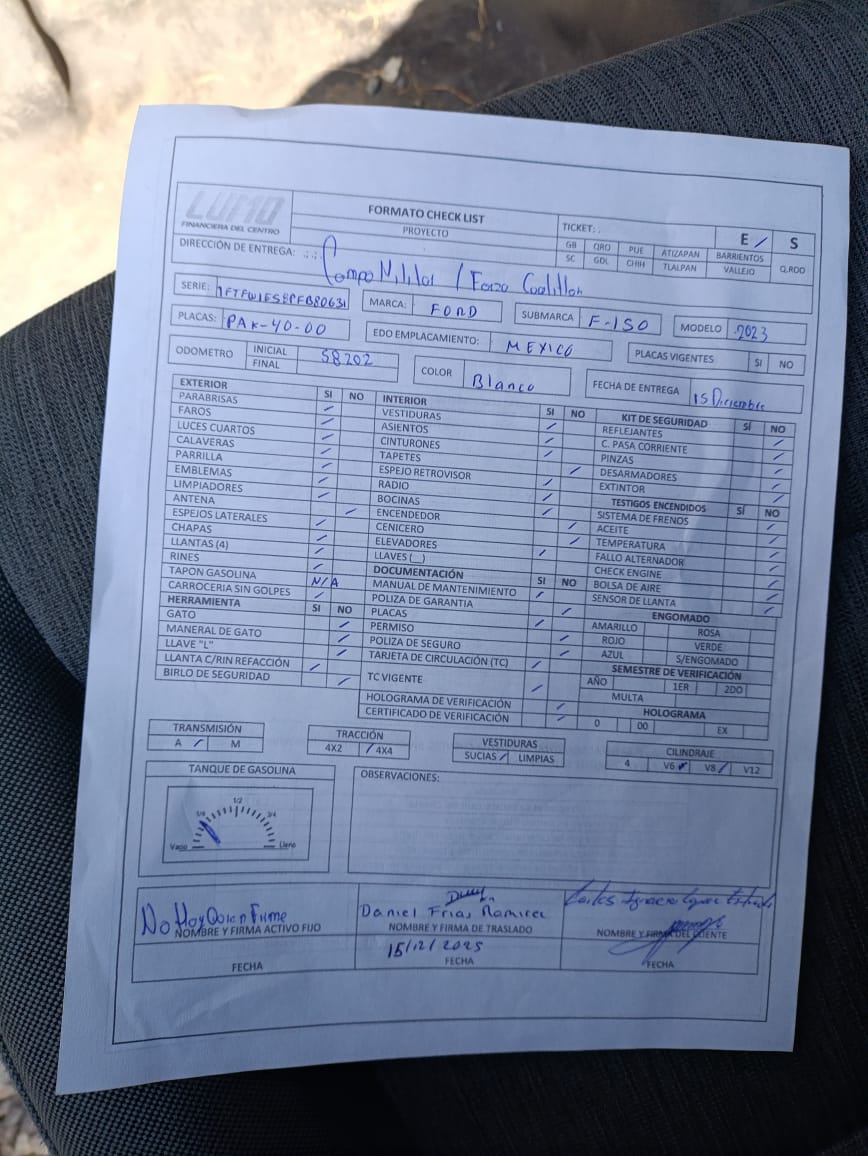 LUMO
FINANCIERA DEL CENTRO
FORMATO CHECK LIST
PROYECTO
TICKET: .
E / S
GB QRO PUE ATIZAPAN BARRIENTOS
SC GDL CHIH TLALPAN VALLEJO Q.ROO
DIRECCIÓN DE ENTREGA: .:.: Campo Militar /
SERIE: 1FTFW1E58PFB80631
MARCA: FORD
SUBMARCA F-150
MODELO 2023
PLACAS: PAK-40-00
EDO EMPLACAMIENTO: MEXICO
PLACAS VIGENTES SI NO
ODOMETRO INICIAL 58202
FINAL
COLOR Blanco
FECHA DE ENTREGA 15 Diciembre
EXTERIOR SI NO
PARABRISAS /
FAROS /
LUCES CUARTOS /
CALAVERAS /
PARRILLA /
EMBLEMAS /
LIMPIADORES /
ANTENA /
ESPEJOS LATERALES /
CHAPAS /
LLANTAS (4) /
RINES /
TAPON GASOLINA N/A
CARROCERIA SIN GOLPES /
HERRAMIENTA SI NO
GATO /
MANERAL DE GATO /
LLAVE "L" /
LLANTA C/RIN REFACCIÓN /
BIRLO DE SEGURIDAD /
INTERIOR SI NO
VESTIDURAS /
ASIENTOS /
CINTURONES /
TAPETES /
ESPEJO RETROVISOR /
RADIO /
BOCINAS /
ENCENDEDOR /
CENICERO /
ELEVADORES /
LLAVES (__)
DOCUMENTACIÓN SI NO
MANUAL DE MANTENIMIENTO /
POLIZA DE GARANTIA /
PLACAS /
PERMISO /
POLIZA DE SEGURO /
TARJETA DE CIRCULACIÓN (TC) /
TC VIGENTE /
HOLOGRAMA DE VERIFICACIÓN /
CERTIFICADO DE VERIFICACIÓN /
KIT DE SEGURIDAD SÍ NO
REFLEJANTES /
C. PASA CORRIENTE /
PINZAS /
DESARMADORES /
EXTINTOR /
TESTIGOS ENCENDIDOS SÍ NO
SISTEMA DE FRENOS /
ACEITE /
TEMPERATURA /
FALLO ALTERNADOR /
CHECK ENGINE /
BOLSA DE AIRE /
SENSOR DE LLANTA /
ENGOMADO
AMARILLO ROSA
ROJO VERDE
AZUL S/ENGOMADO
SEMESTRE DE VERIFICACIÓN
AÑO 1ER 2DO
MULTA
HOLOGRAMA
0 00 EX
TRANSMISIÓN
A / M
TRACCIÓN
4X2 / 4X4
VESTIDURAS
SUCIAS / LIMPIAS
CILINDRAJE
4 V6 V8 / V12
TANQUE DE GASOLINA
1/2
3/4
Vacio Lleno
OBSERVACIONES:
No Hay Quien Firme
NOMBRE Y FIRMA ACTIVO FIJO
FECHA
Daniel Frias Ramirez
NOMBRE Y FIRMA DE TRASLADO
15/12/2025
FECHA
Carlos Ignacio
NOMBRE Y FIRMA DEL CLIENTE
FECHA